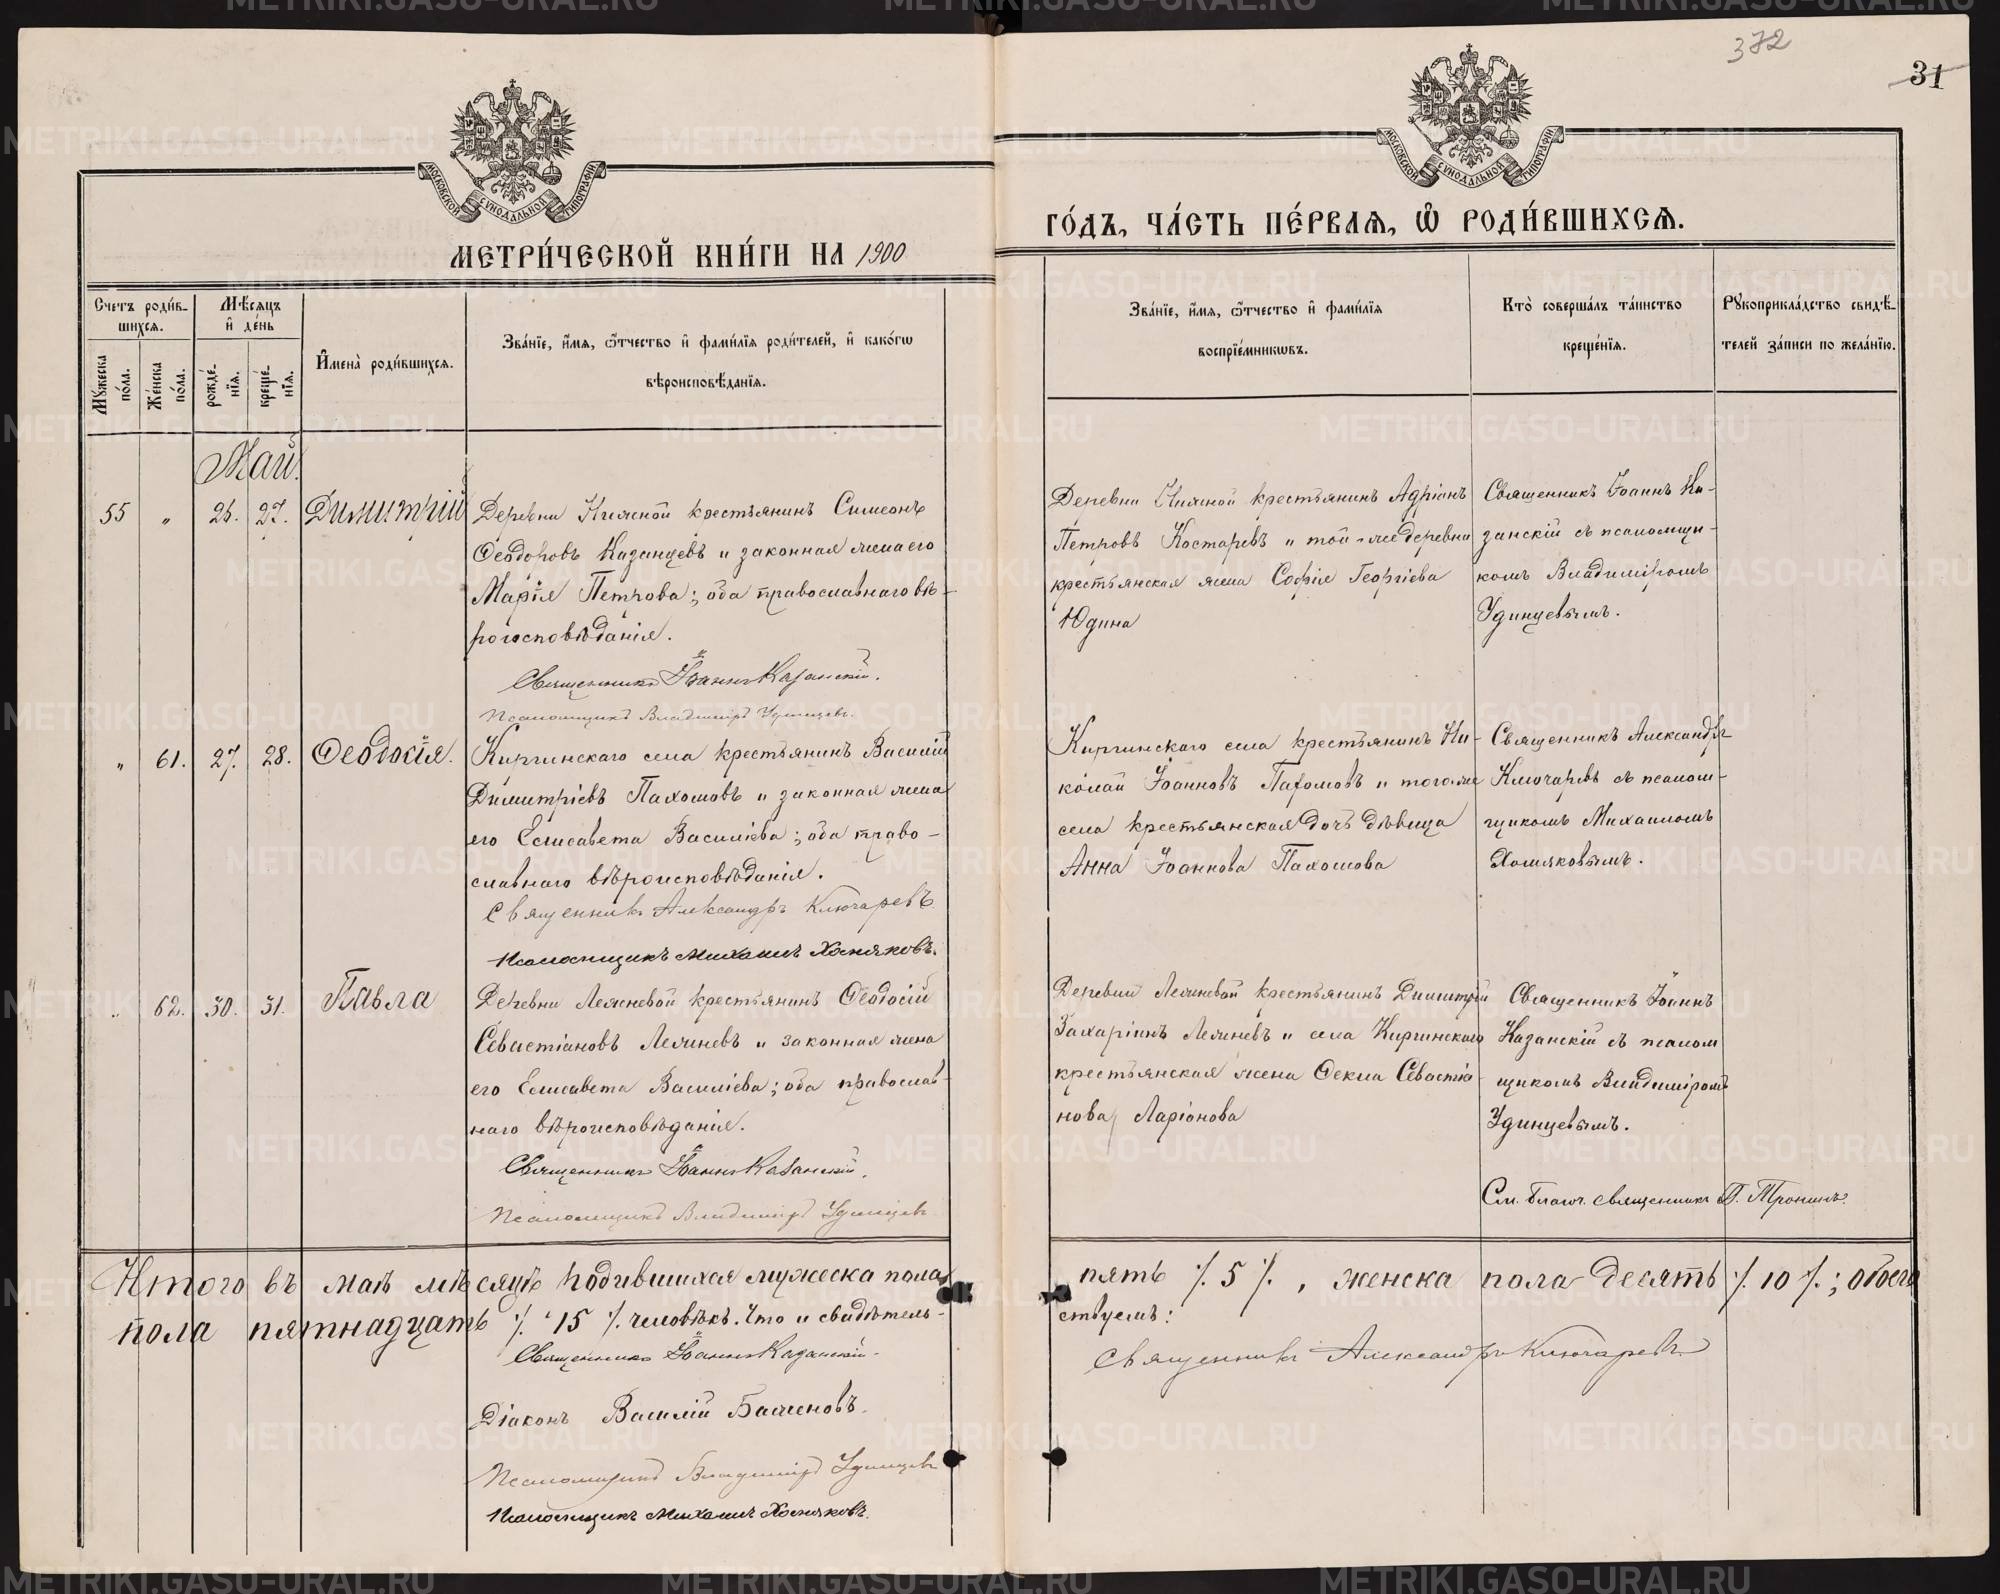 372
31
МОСКОВСКОЙ СѴНОДАЛЬНОЙ ТИПОГРАФІИ
МОСКОВСКОЙ СѴНОДАЛЬНОЙ ТИПОГРАФІИ
МЕТРИ́ЧЕСКОЙ КНИ́ГИ НА 1900
ГО́ДЪ, ЧА́СТЬ ПЕ́РВАѦ, Ѽ РОДИ́ВШИХСѦ.
Счетъ роди́в-
шихсѧ.
Мѣ́сѧцъ
и҆ де́нь
Мꙋ́жеска по́ла.
Же́нска по́ла.
рожде́-нїѧ.
креще́-нїѧ.
И҆мена̀ роди́вшихсѧ.
Зва́нїе, и҆́мѧ, ѻ҆́тчество и҆ фами́лїѧ роди́телей, и҆ како́гѡ
вѣроисповѣ́данїѧ.
Зва́нїе, и҆́мѧ, ѻ҆́тчество и҆ фами́лїѧ
воспрїе́мникѡвъ.
Кто̀ соверша́лъ та́инство
креще́нїѧ.
Рꙋкоприкла́дство свидѣ́-
телей за́писи по жела́нїю.
Май.
55 „ 26. 27. Димитрій
Деревни Нижной крестьянинъ Симеонъ
Ѳеодоровъ Казанцевъ и законная жена его
Марія Петрова; оба православнаго вѣ-
роисповѣданія.
Священникъ Іоаннъ Казанскій.
Псаломщикъ Владиміръ Удинцевъ.
Деревни Нижной крестьянинъ Адріанъ
Петровъ Костаревъ и той-же деревни
крестьянская жена Софія Георгіева
Юдина
Священникъ Іоаннъ Ка-
занскій съ псаломщи-
комъ Владиміромъ
Удинцевымъ.
„ 61. 27. 28. Ѳеодосія.
Киргинскаго села крестьянинъ Василій
Димитріевъ Пахомовъ и законная жена
его Елисавета Василіева; оба право-
славнаго вѣроисповѣданія.
Священникъ Александръ Ключаревъ
Псаломщикъ Михаилъ Хомяковъ.
Киргинскаго села крестьянинъ Ни-
колай Іоанновъ Пахомовъ и того-же
села крестьянская дочь дѣвица
Анна Іоаннова Пахомова
Священникъ Александръ
Ключаревъ съ псалом-
щикомъ Михаиломъ
Хомяковымъ.
„ 62. 30. 31. Павла
Деревни Лежневой крестьянинъ Ѳеодосій
Севастіановъ Лежневъ и законная жена
его Елисавета Василіева; оба православ-
наго вѣроисповѣданія.
Священникъ Іоаннъ Казанскій.
Псаломщикъ Владиміръ Удинцевъ
Деревни Лежневой крестьянинъ Димитрій
Захаріинъ Лежневъ и села Киргинскаго
крестьянская жена Ѳекла Севастіа-
нова Ларіонова
Священникъ Іоаннъ
Казанскій съ псалом
щикомъ Владиміромъ
Удинцевымъ.
См. Благч. священникъ П. Тронинъ.
Итого въ маѣ мѣсяцѣ родившихся мужеска пола
пять ٪ 5 ٪, женска пола десять ٪ 10 ٪; обоего
пола пятнадцать ٪ 15 ٪ человѣкъ. Что и свидѣтель-
ствуемъ:
Священникъ Іоаннъ Казанскій.
Священникъ Александръ Ключаревъ
Діаконъ Василій Баженовъ.
Псаломщикъ Владиміръ Удинцевъ
Псаломщикъ Михаилъ Хомяковъ.
METRIKI.GASO-URAL.RU